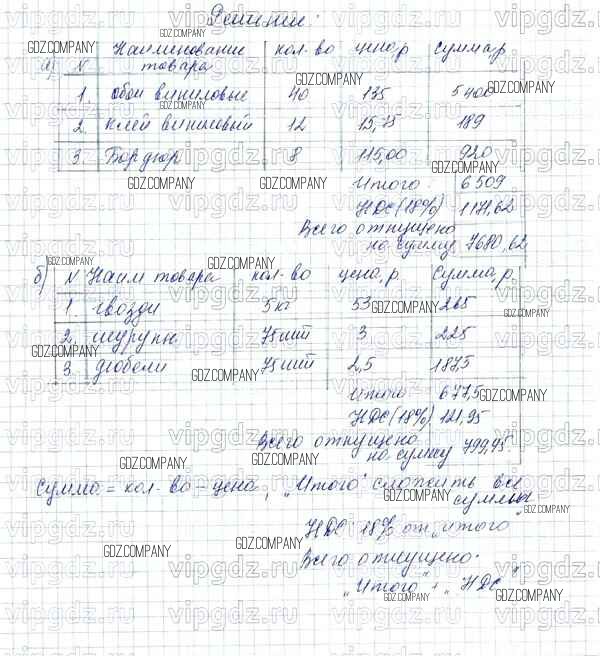 Решение:
а) N Наименование товара кол-во цена,р сумма,р
1. обои виниловые 40 135 5400
2. клей виниловый 12 15,75 189
3. Бордюр 8 115,00 920
Итого: 6509
НДС (18%) 1171,62
Всего отпущено
на сумму 7680,62
б) N Наим товара кол-во цена,р сумма,р.
1. гвозди 5кг 53 265
2. шурупы 75шт 3 225
3. дюбели 75шт 2,5 187,5
Итого 677,5
НДС (18%) 121,95
Всего отпущено
на сумму 799,45.
Сумма = кол-во - цена, „Итого" сложить все
суммы
НДС: 18% от „итого"
Всего отпущено:
„Итого" + „НДС"
GDZ.COMPANY
vipgdz.ru